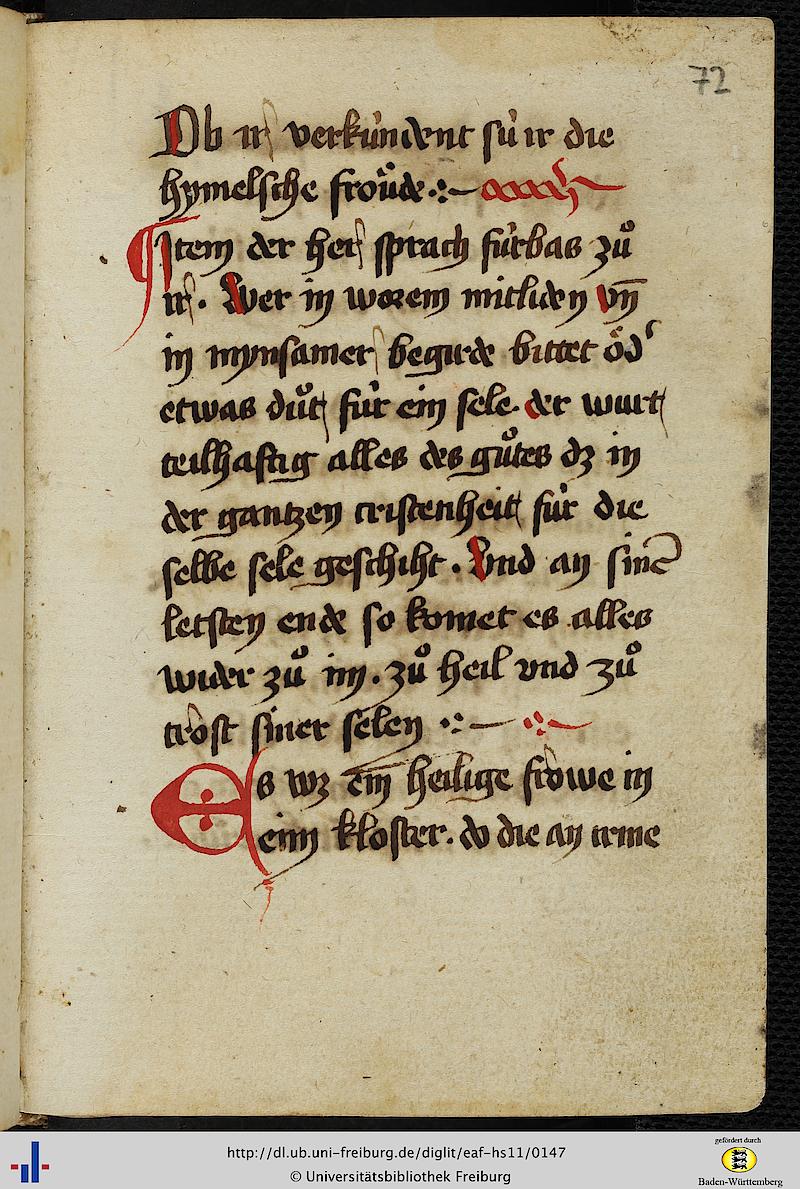 72
Ob ir verkúndent sú ir die
hymelsche froͧde
Item der her sprach fúrbas zuͦ
ir. Wer in worem mitliden vn̄
in mynsamer begirde bittet öd'
etwas duͦt fúr ein sele. der wurt
teilhaftig alles des guͦtes dz in
der gantzen cristenheit fúr die
selbe sele geschiht. Vnd an sinē
letsten ende so komet es alles
wider zuͦ im. zuͦ heil vnd zuͦ
trost siner selen
Es wz ein heilige frowe in
eim kloster. do die an irme
http://dl.ub.uni-freiburg.de/diglit/eaf-hs11/0147
© Universitätsbibliothek Freiburg
gefördert durch
Baden-Württemberg